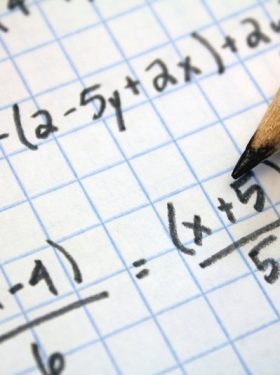 -(2-5y+2x)+2
-4) = (x+5
6 5